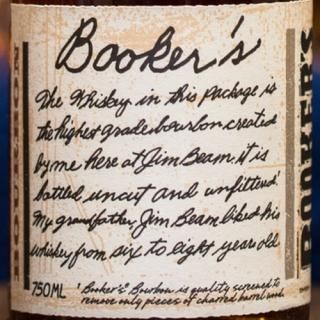 Booker's
The Whiskey in this package is
the highest grade bourbon created
by me here at Jim Beam. it is
bottled uncut and unfiltered¹
My grandfather, Jim Beam liked his
whiskey from six to eight years old
750ML
¹ Booker's® Bourbon is quality screened to
remove only pieces of charred barrel wood.
BOOKER'S